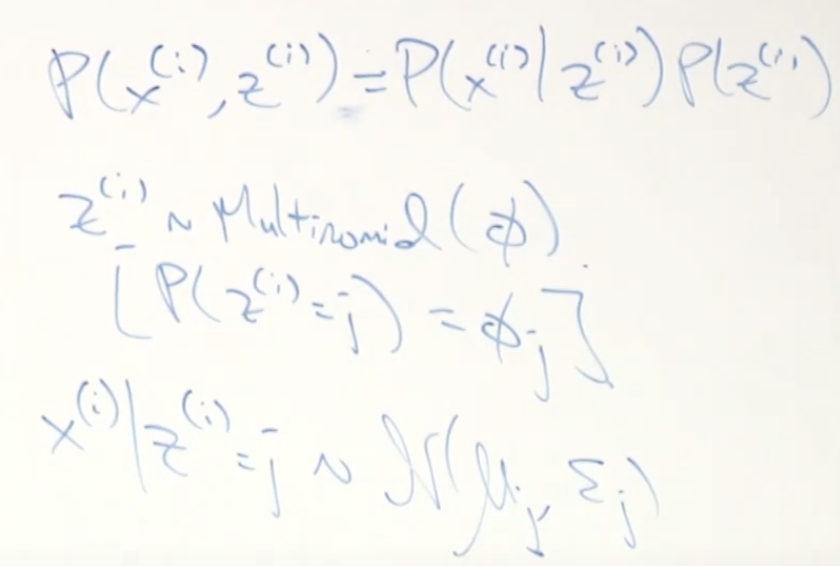 P(x^(i), z^(i)) = P(x^(i) | z^(i)) P(z^(i)
z^(i) ~ Multinomial(φ)
[P(z^(i) = j) = φ_j]
x^(i) | z^(i) = j ~ N(μ_j, Σ_j)